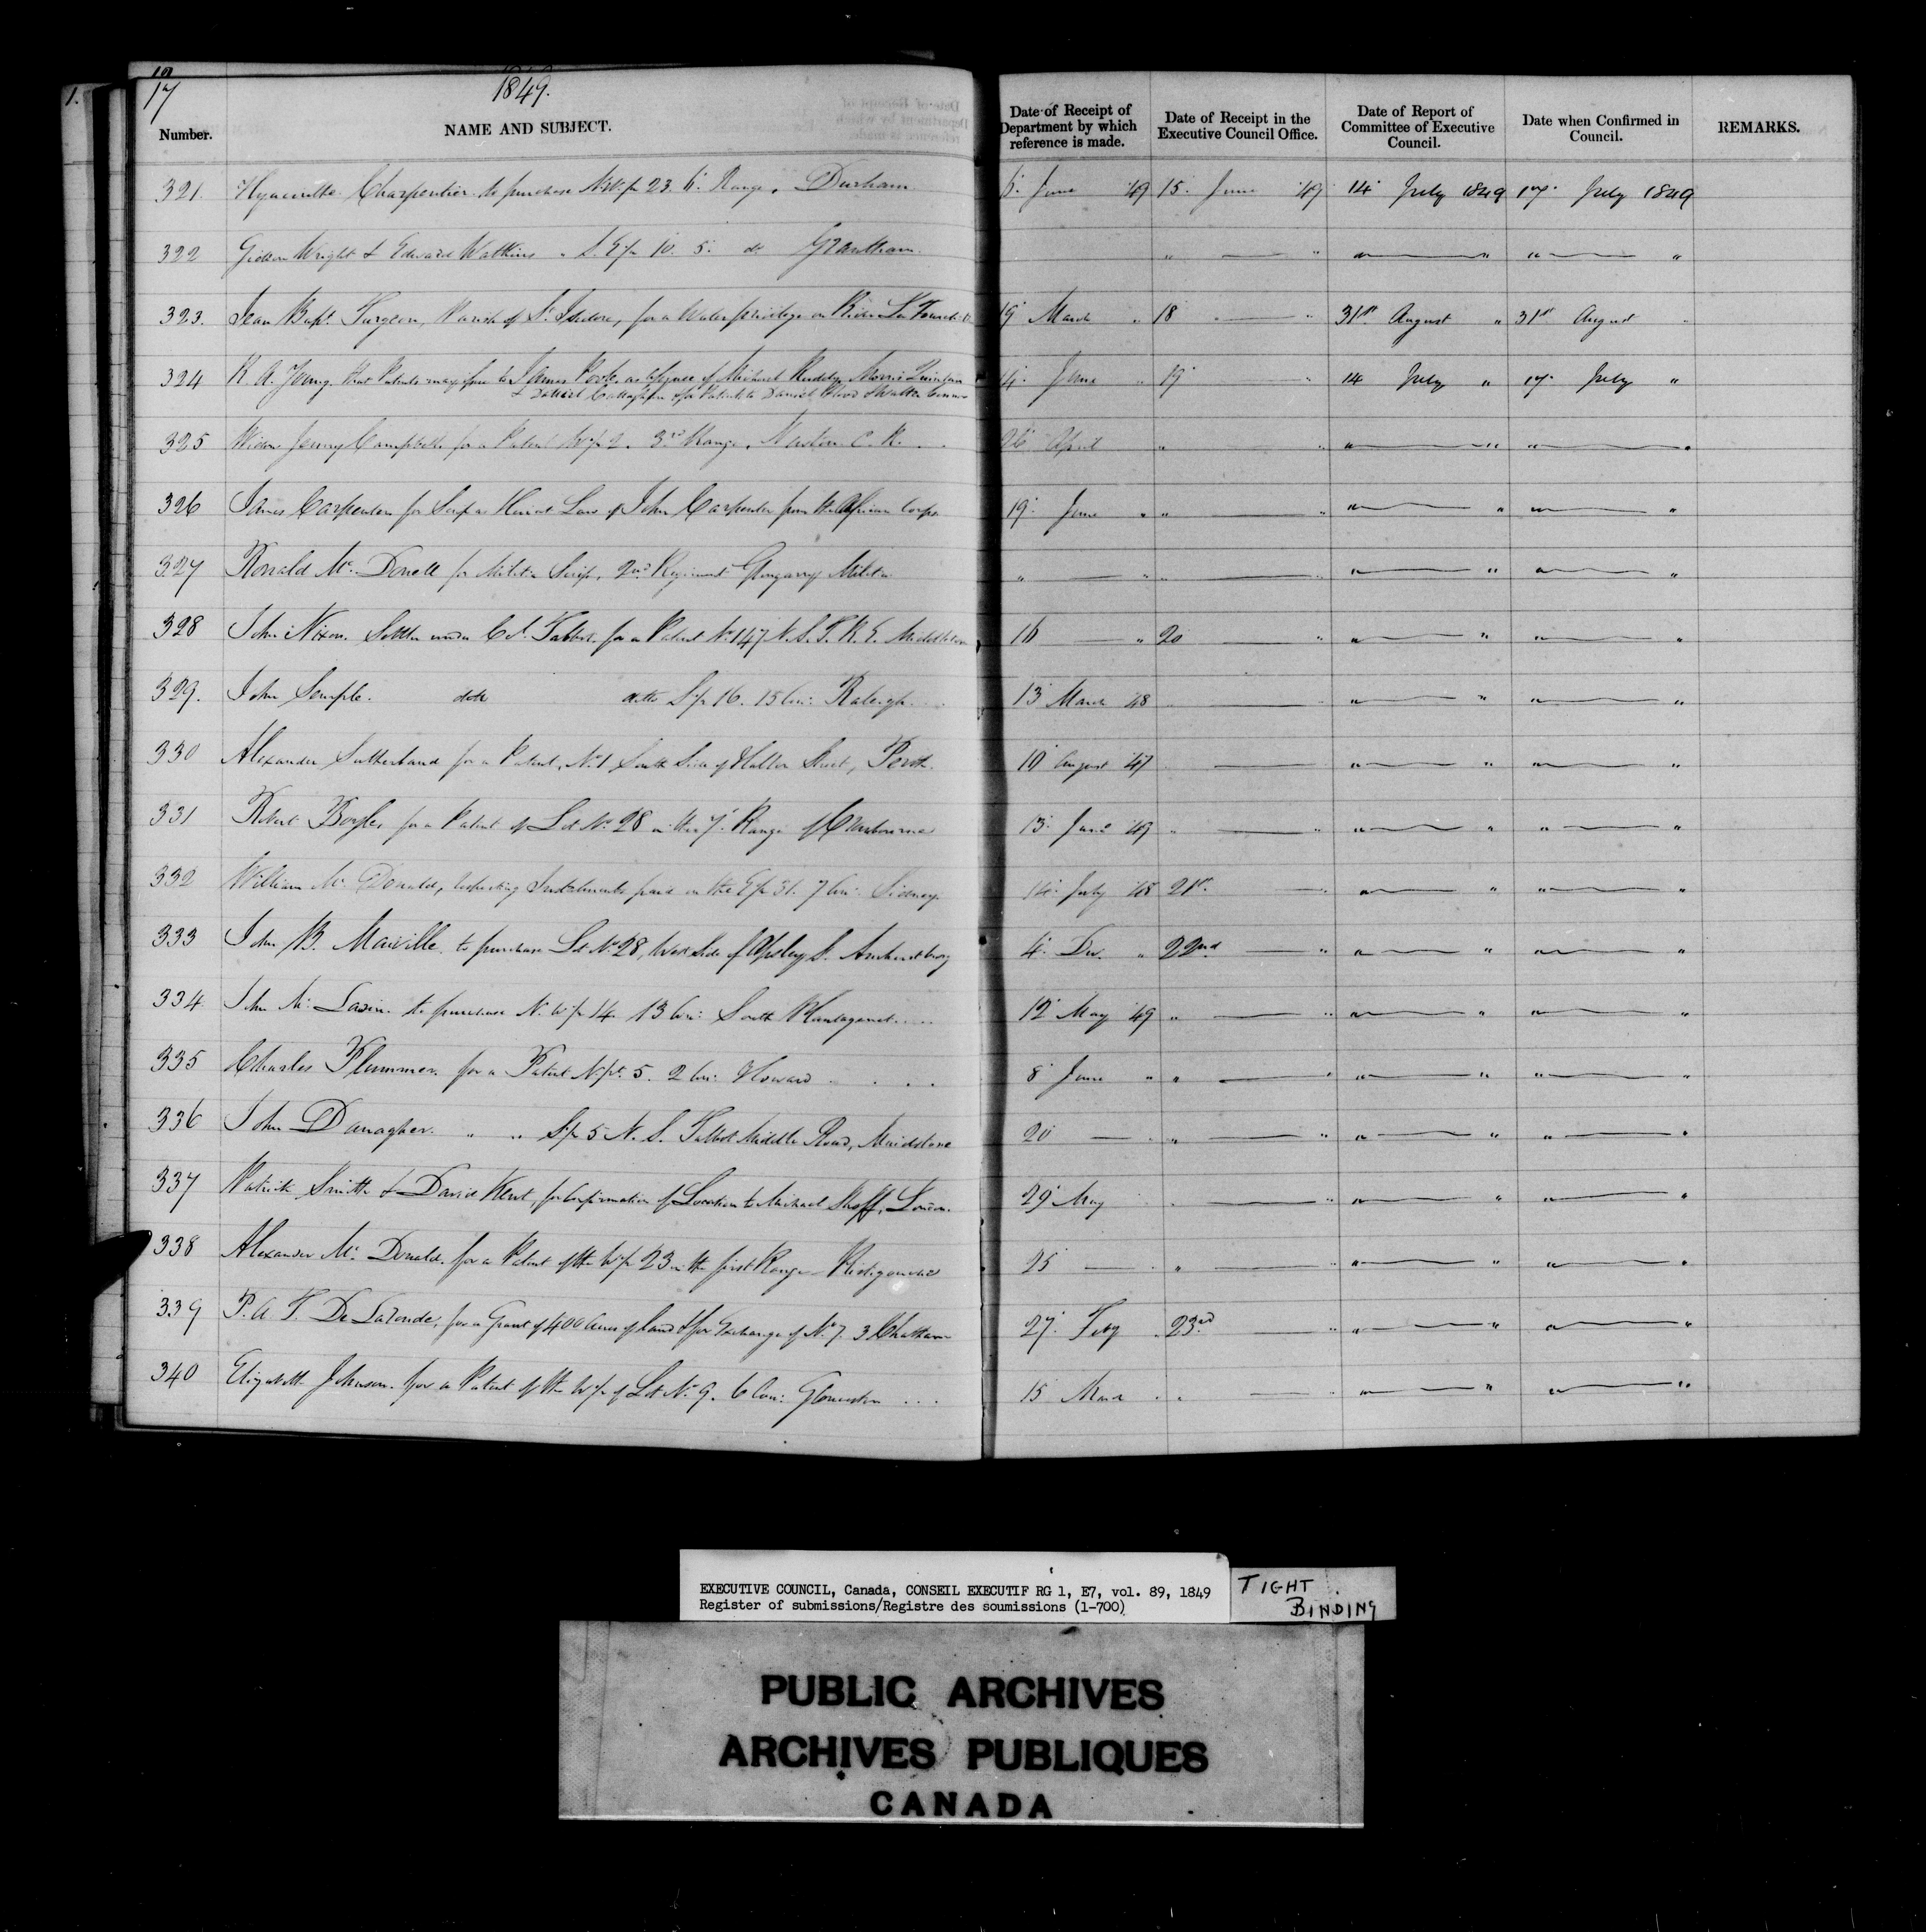 17
1849.
Number. NAME AND SUBJECT. Date of Receipt of Department by which reference is made. Date of Receipt in the Executive Council Office. Date of Report of Committee of Executive Council. Date when Confirmed in Council. REMARKS.
321. Hyacinthe Charpentier to purchase N.W. pr 23. 6. Range, Durham 6. June '49 15. June '49 14 July 1849 17. July 1849
322 Gideon Wright & Edward Watkins " S. E. pr 10. 5. do Grantham " — " " — " " — "
323. Jean Bapt. Turgeon, Parish of St. Isidore, for a Water privilege on River 19 March " 18 — " 31st August " 31st August "
324 R. A. Young, that Patents may issue to James Poole as Assignee of Michael Morris
& Daniel Callaghan & for Patents to Daniel & Walter 14. June " 19 — " 14 July " 17. July "
325 Widow Jenny Campbell for a Patent W. pr 2. 3rd Range, Newton C. R. 26 April " — " " — " " — "
326 James Carpenter for Scrip as Heir at Law of John Carpenter from the African Corps 19. June " " — " " — " " — "
327 Ronald Mc. Donell for Militia Scrip, 2nd Regiment Glengarry Militia " — " " — " " — " " — "
328 John Nixon. Settler under Col. Talbot. for a Patent No. 147 N. S. T. R. E. Middleton 16 — " 20 — " " — " " — "
329. John Semple. ditto ditto S. pr 16. 15 Con: Raleigh 13 March '48 " — " " — " " — "
330 Alexander Sutherland for a Patent, No. 1 South Side of Halton Street, Perth. 10 August '47 — " " — " " — "
331 Robert for a Patent of Lot No. 28 in the 7. Range of Cranbourne 13. June '49 " — " " — " " — "
332 William Mc. Donald, respecting Instalments paid on the E. pr 31. 7 Con: Sidney. 14. July '48 21st. — " " — " " — "
333 John B. to purchase Lot No. 28, West Side of Apsley St. Amherstburg 4. Dec. " 22nd — " " — " " — "
334. John Mc. to purchase N. W. pr 14. 13 Con: South Plantagenet 12 May '49 " — " " — " " — "
335 Charles Plummer. for a Patent N. pt. 5. 2 Con: Howard 8 June " " — " " — " " — "
336 John Danagher. " " S. pr 5 N. S. Talbot Middle Road, Maidstone 20 — " " — " " — " " — "
337 Patrick Smith & David Kent, for Confirmation of Location to Michael London. 29 May " — " " — " " — "
338 Alexander Mc. Donald. for a Patent of the W. pr 23 in the first Range Ristigouche 25 — " " — " " — " " — "
339 P. A. T. De LaRonde, for a Grant of 400 Acres of Land & for Exchange of No. 7. 3 Chatham 27. Feby " 23rd. — " " — " " — "
340 Elizabeth Johnson. for a Patent of the W. pr of Lot No. 9. 6 Con: Gloucester 15 March " " — " " — " " — "
EXECUTIVE COUNCIL, Canada, CONSEIL EXECUTIF RG 1, E7, vol. 89, 1849
Register of submissions/Registre des soumissions (1-700)
TIGHT
BINDING
PUBLIC ARCHIVES
ARCHIVES PUBLIQUES
CANADA